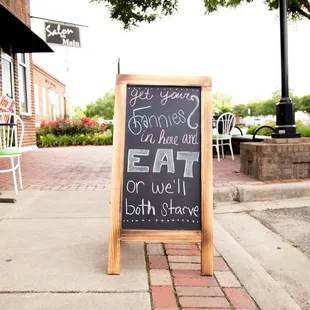 Salon
on
Main
get your
Fannies
in here and
EAT
or we'll
both starve